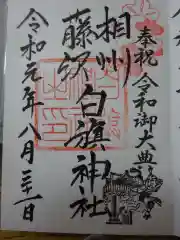 奉祝令和御大典
相州
藤沢白旗神社
令和元年八月三十一日